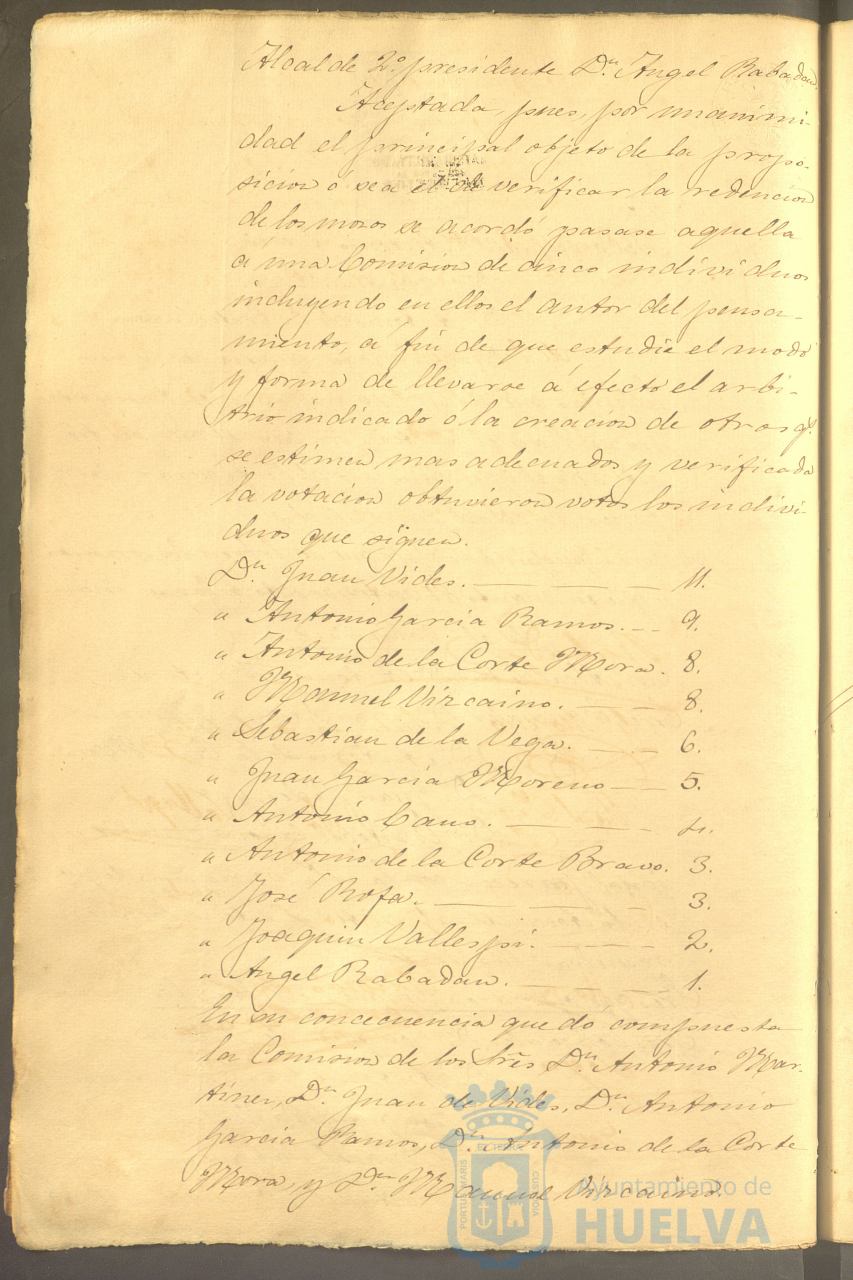 Alcalde 2º presidente Dn Angel Rabadan.
Aceptada, pues, por unanimi-
dad el principal objeto de la propo-
sicion ó sea el de verificar la redencion
de los mozos se acordó pasase aquella
á una Comision de cinco individuos
incluyendo en ellos el autor del pensa-
miento, á fin de que estudie el modo
y forma de llevarse á efecto el arbi-
trio indicado ó la creacion de otros qe
se estimen mas adecuados y verificada
la votacion obtuvieron votos los indivi-
duos que siguen.
Dn Juan Vides. — — — 11.
" Antonio Garcia Ramos. — 9.
" Antonio de la Corte Mora. 8.
" Manuel Vizcaino. — — 8.
" Sebastian de la Vega. — — 6.
" Juan Garcia Moreno — — 5.
" Antonio Cano. — — — 4.
" Antonio de la Corte Bravo. 3.
" José Rofa. — — — 3.
" Joaquin Vallespi. — — 2.
" Angel Rabadan. — — — 1.
En su concecuencia quedó compuesta
la Comision de los Sres Dn Antonio Mar-
tinez, Dn Juan de Vides, Dn Antonio
Garcia Ramos, Dn Antonio de la Corte
Mora, y Dn Manuel Vizcaino.
PORTUS MARIS ET TERRE CUSTODIA
Ayuntamiento de
HUELVA